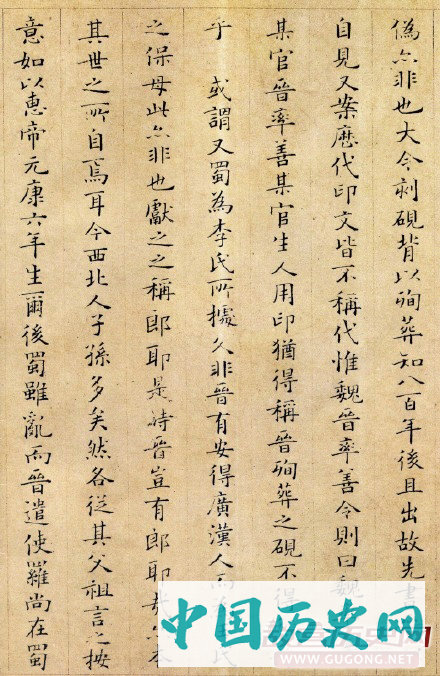 偽亦非也大令刻硯背以殉葬知八百年後且出故先書
自見又案歷代印文皆不稱代惟魏晉率善令則曰魏
某官晉率善某官生人用印猶得稱晉殉葬之硯不得
乎 或謂又蜀為李氏所據久非晉有安得廣漢人而氏
之保母此亦非也獻之之稱郎耶是時晉豈有郎耶哉亦本
其世之所自焉耳今西北人子孫多矣然各從其父祖言之按
意如以惠帝元康六年生爾後蜀雖亂而晉遣使羅尚在蜀
中国历史网
WWW.GUGONG.NET